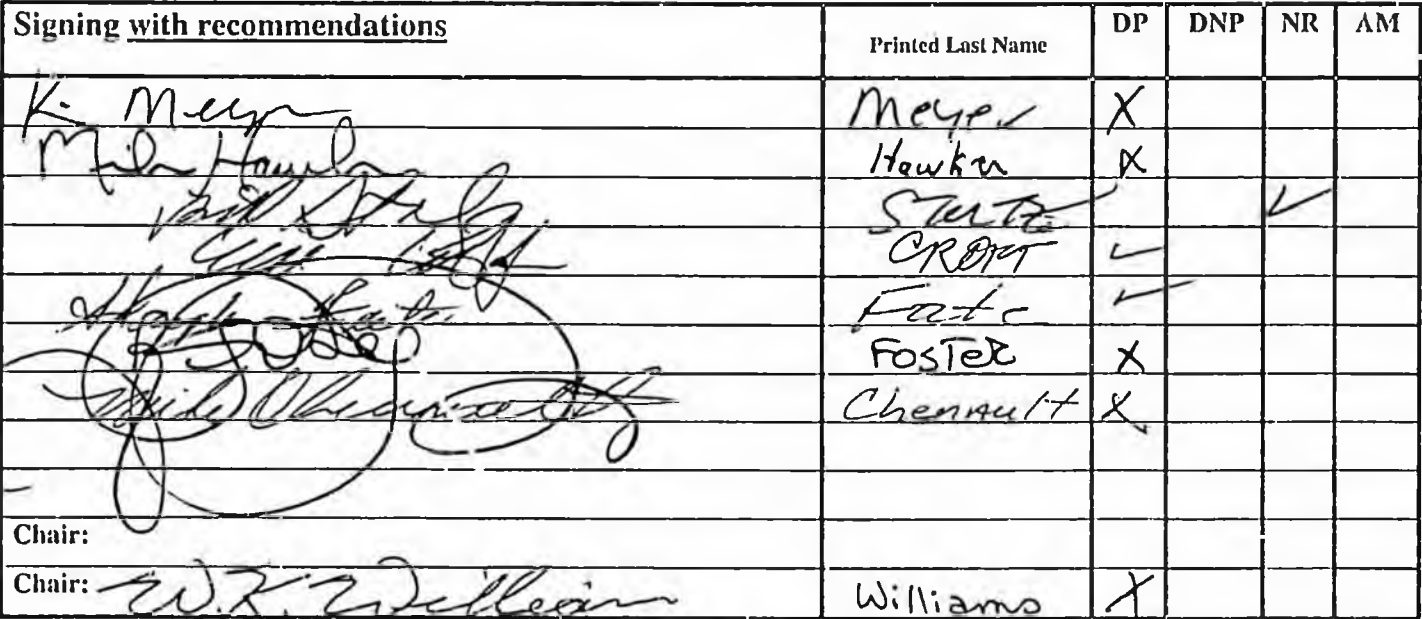 Signing with recommendations Printed Last Name DP DNP NR AM
K. Meyer Meyer X
Mike Hawker Hawker X
Bill Stoltze ✓
CROFT ✓
Hugh Fate Fate ✓
Foster FOSTER X
Mike Chenault Chenault X
Chair:
Chair: W.K. Williams Williams X